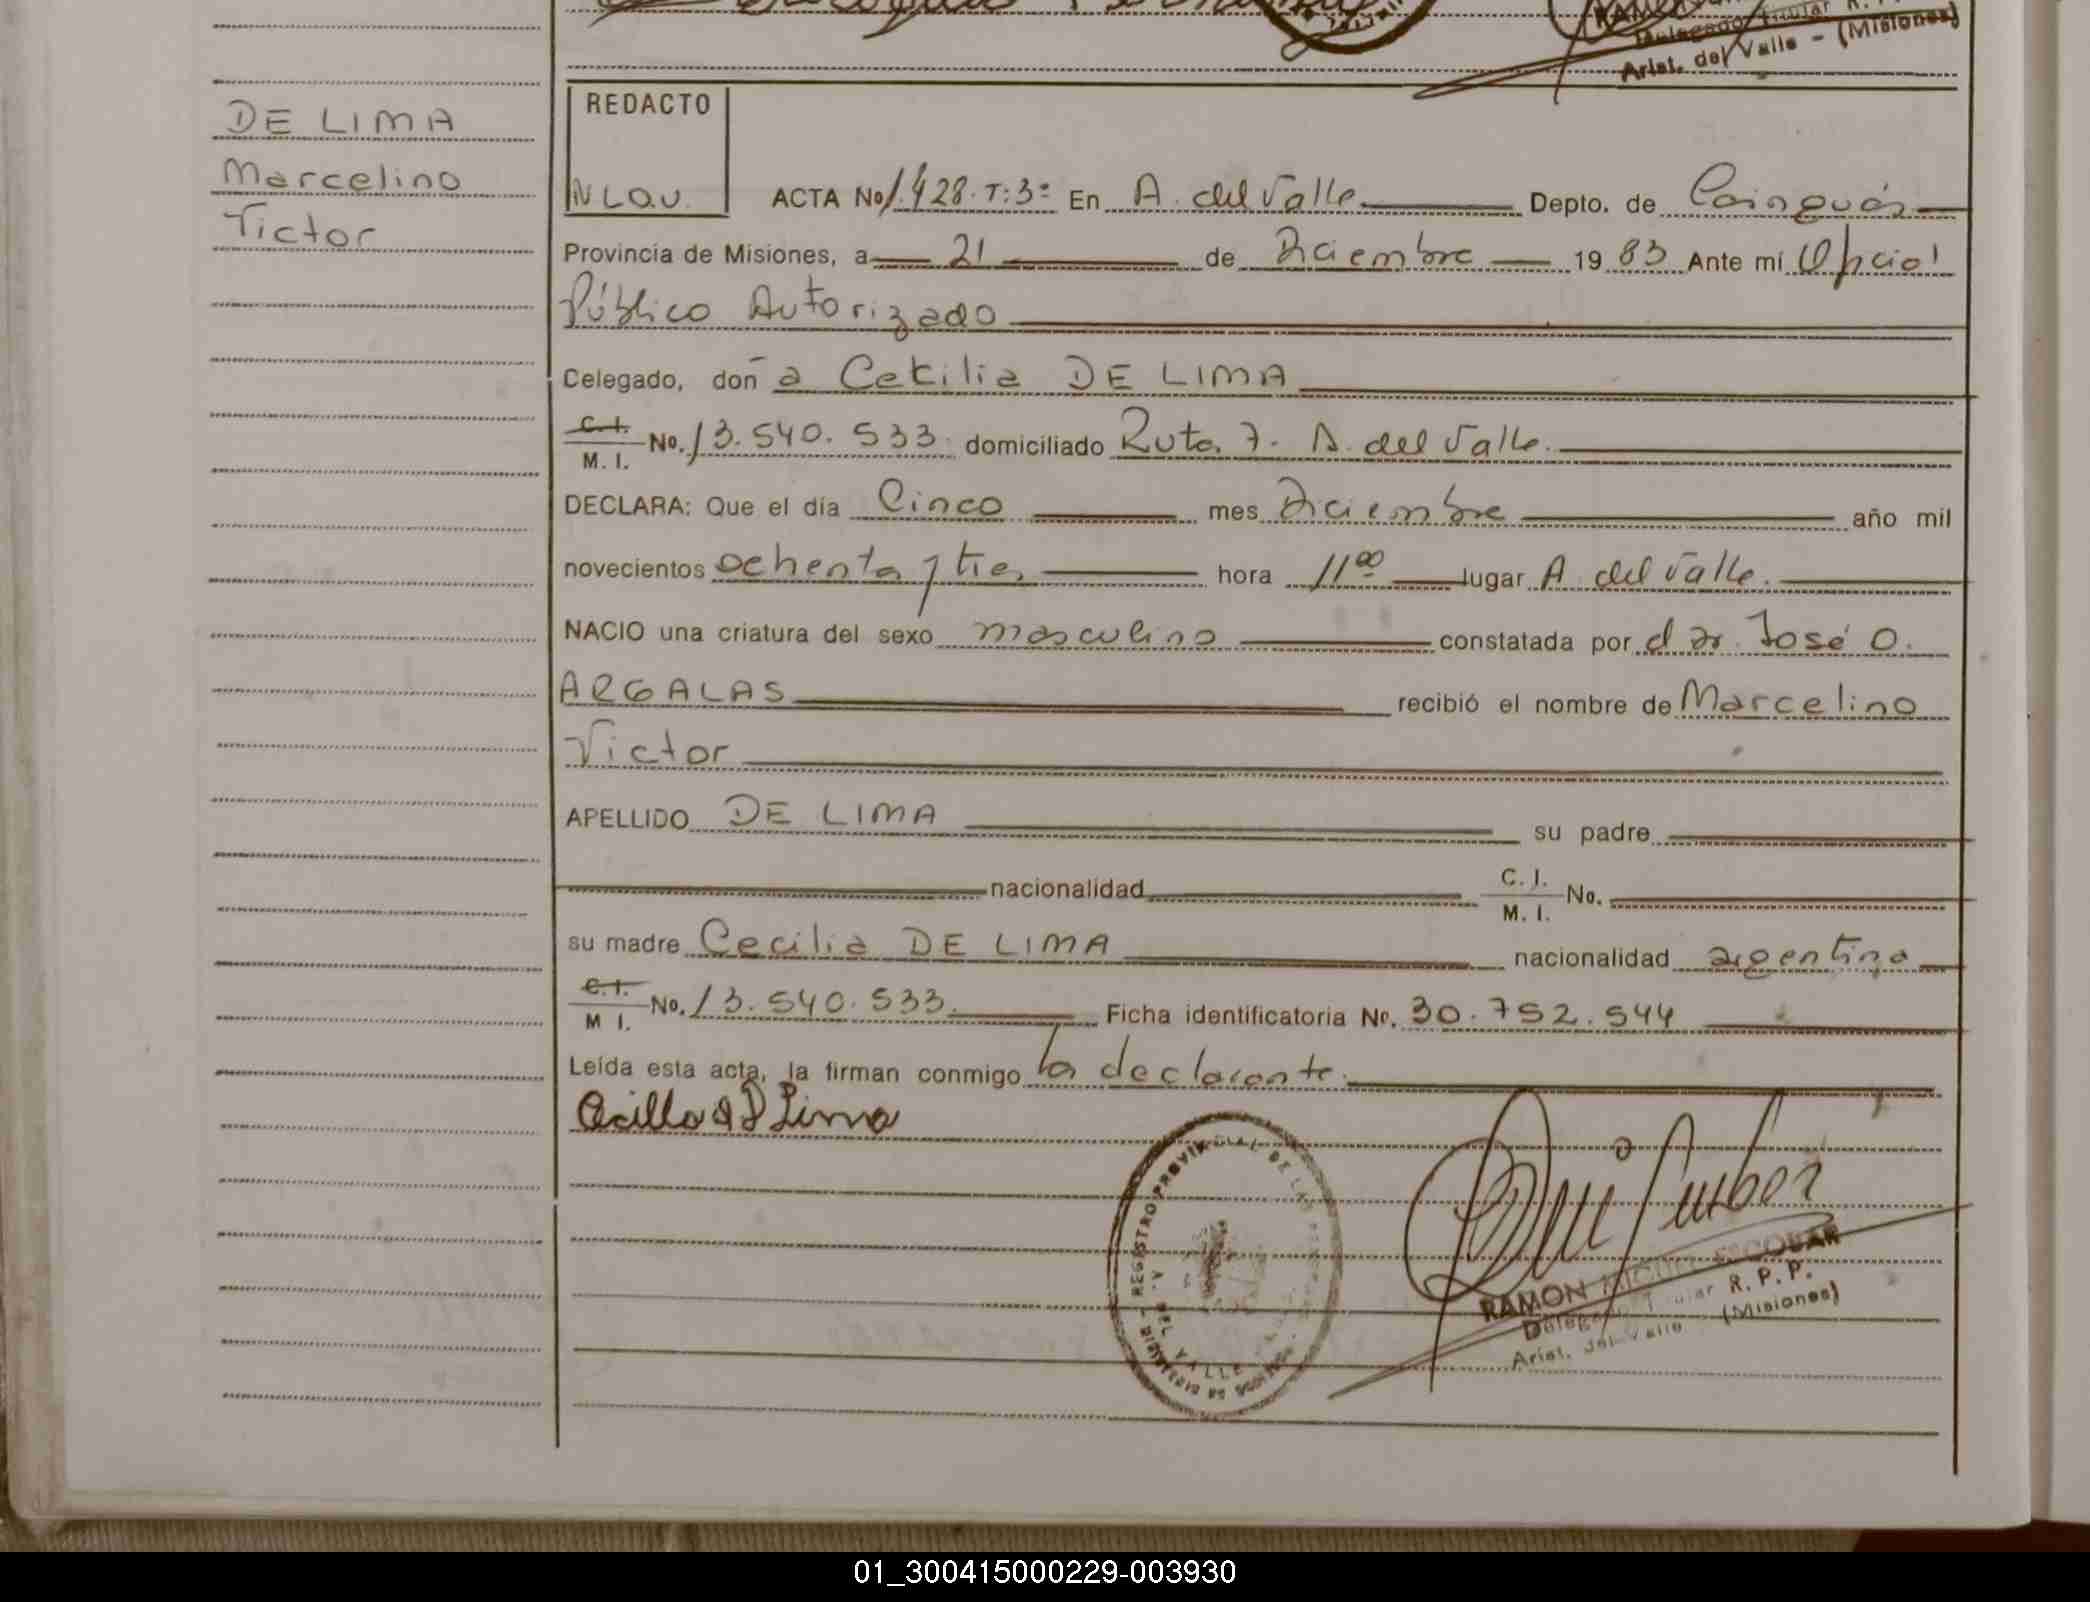 Delegado Titular R. P. P.
Arist. del Valle - (Misiones)
DE LIMA
Marcelino
Victor
REDACTO
ACTA No 1.428. T: 3º En A. del Valle Depto. de Cainguás
Provincia de Misiones, a 21 de Diciembre 19 83 Ante mí Oficial
Público Autorizado
Celegado, don a Cecilia DE LIMA
C.I.
M. I. No. 13.540.533. domiciliado Ruta 7. A. del Valle.
DECLARA: Que el día Cinco mes Diciembre año mil
novecientos ochenta y tres hora 11 00 lugar A. del Valle.
NACIO una criatura del sexo masculino constatada por el dr. José O.
ARGALAS recibió el nombre de Marcelino
Victor
APELLIDO DE LIMA su padre
nacionalidad C. I.
M. I. No.
su madre Cecilia DE LIMA nacionalidad argentina
C.I.
M I. No. 13.540.533. Ficha identificatoria No. 30.752.544
Leída esta acta, la firman conmigo la declarante.
REGISTRO PROVINCIAL DE LAS
A. DEL VALLE
RAMON MIGUEL ESCOBAR
Delegado Titular R. P. P.
Arist. del Valle (Misiones)
01_300415000229-003930